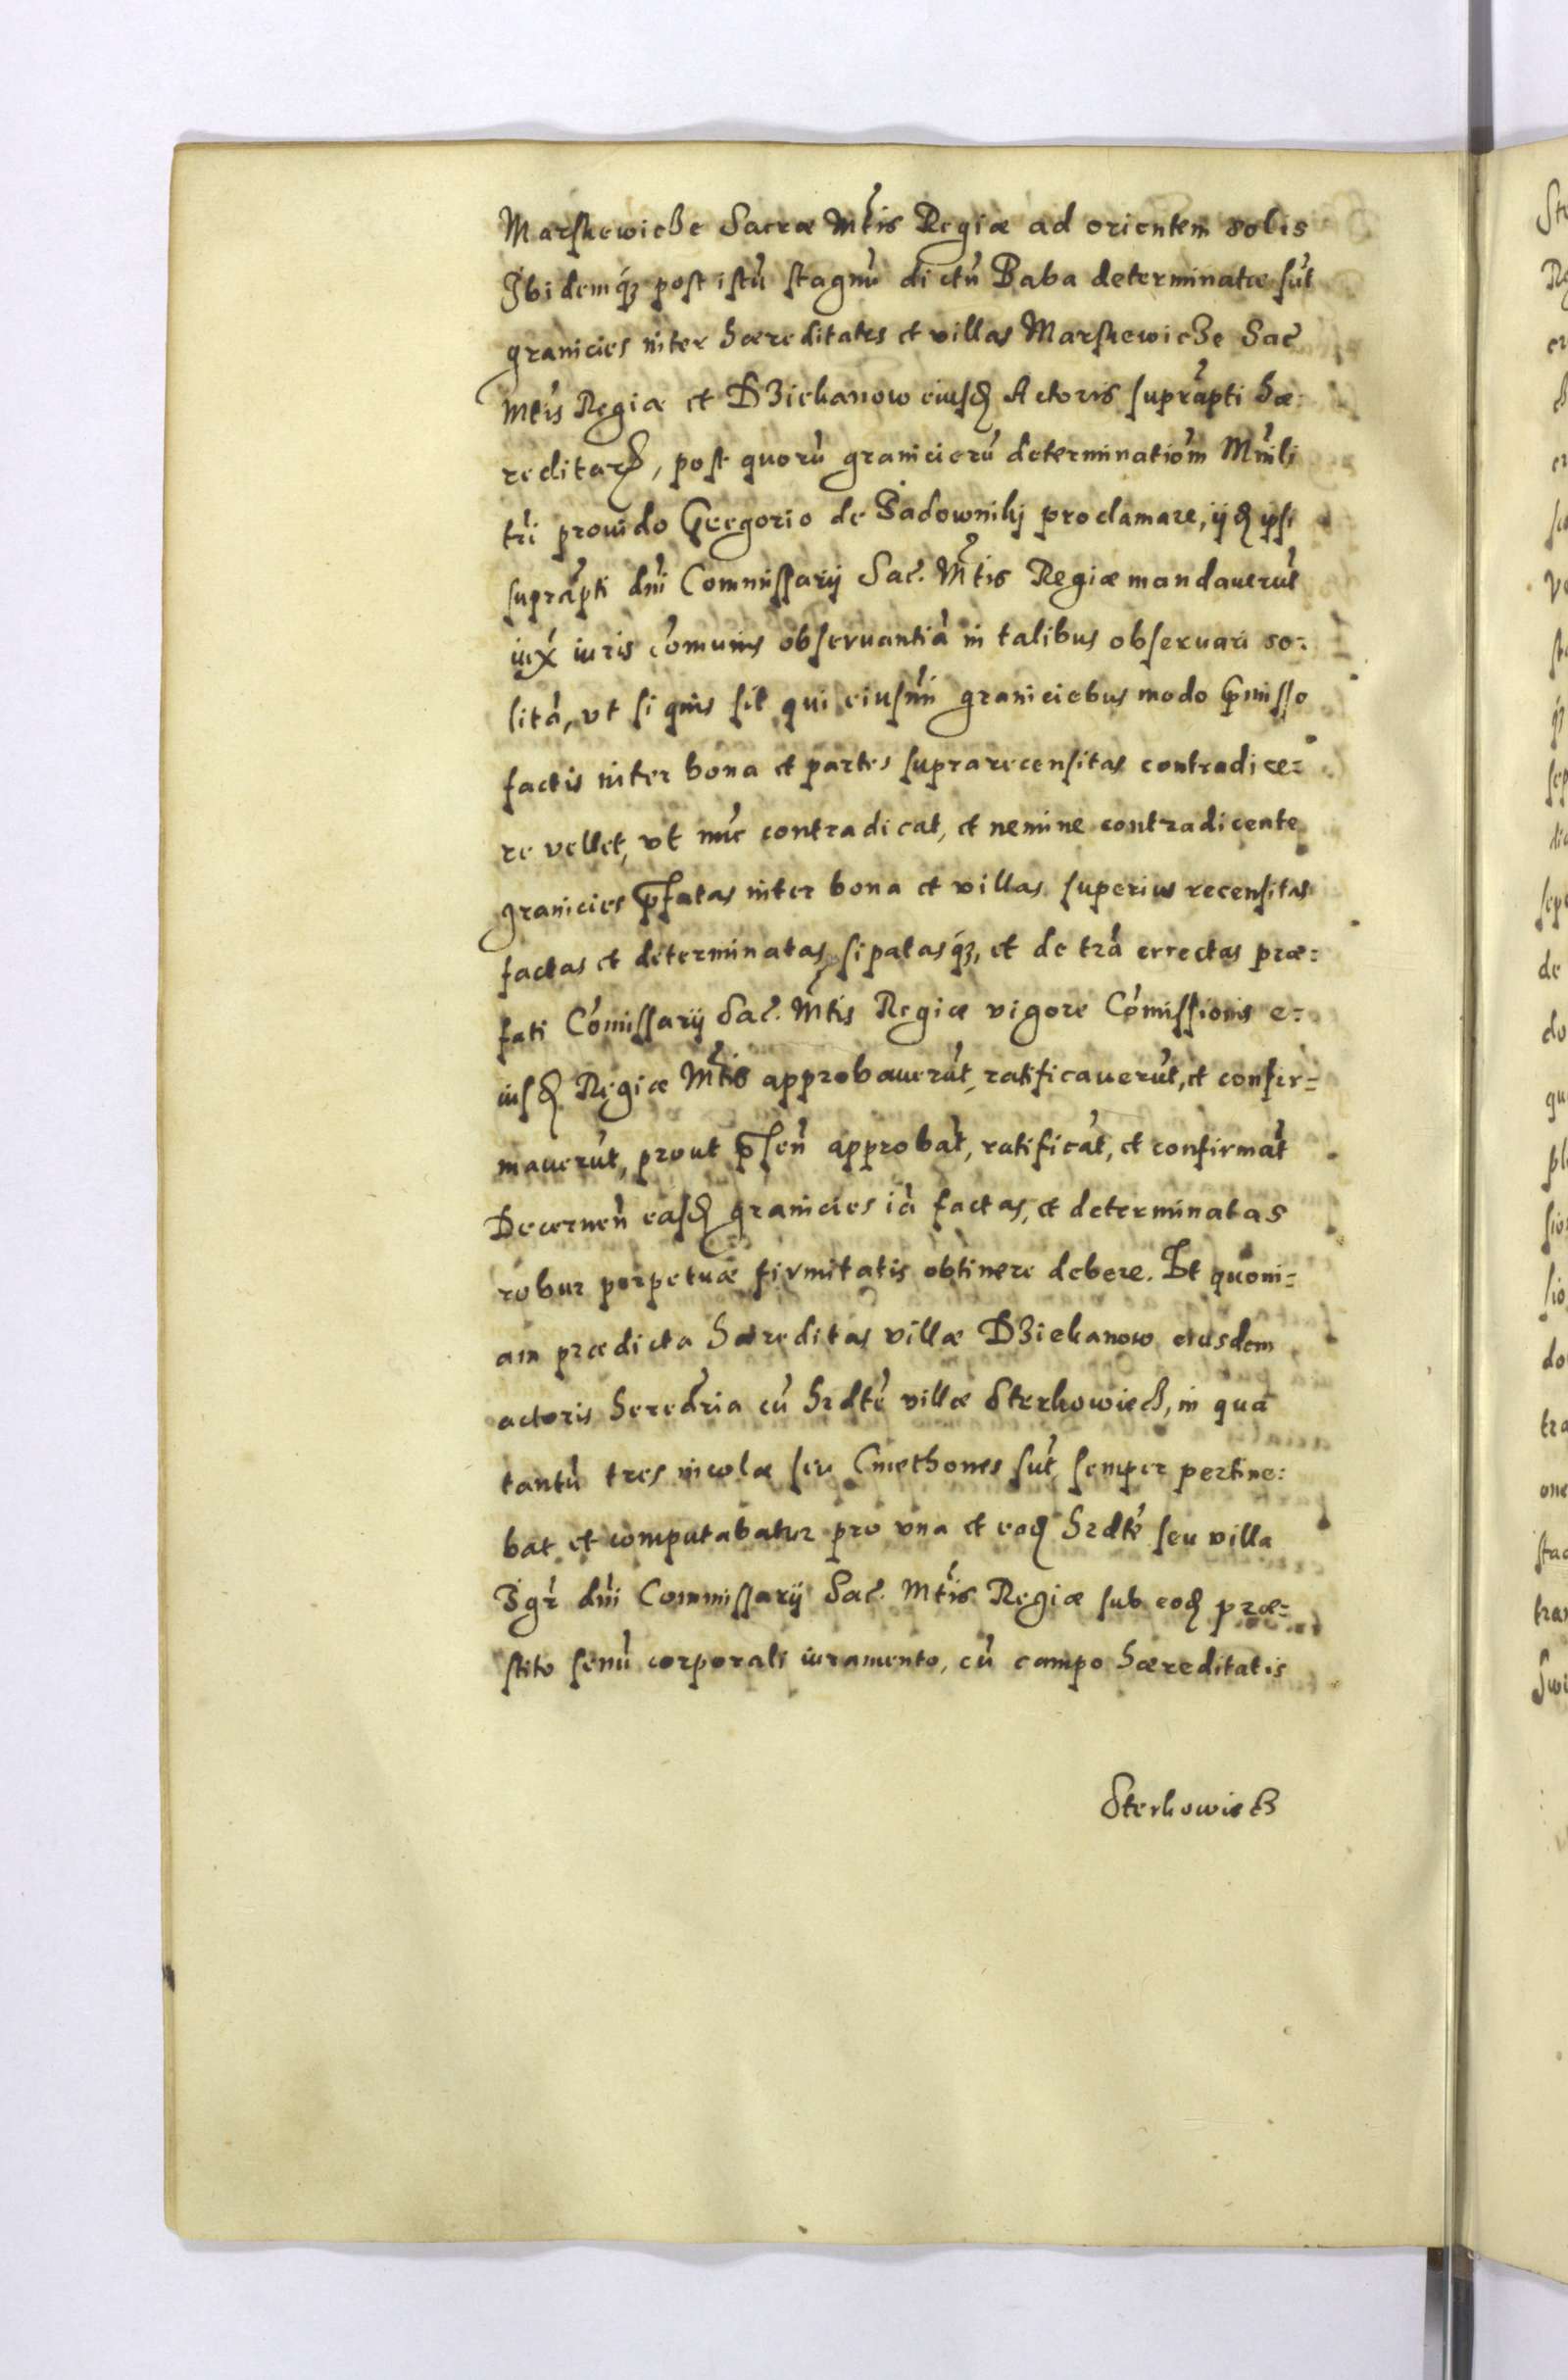 Marskewicze Sacræ Mtis Regiæ ad orientem solis
Ibidemq́ꝫ post istũ stagnũ dictũ Baba determinatæ sũt
granicies inter hæreditates et villas Marskewicze Sac̃
Mtis Regiæ et Dziekanow eiusd Actoris suprapti hæ:
reditar, post quorũ granicierũ determinatiõm Mini
tri prouido Gregorio de Sadowniki proclamare, ijd ipsi
suprapti dñi Commissarij Sac̃. Mtis Regiæ mandauerũt
iux̃ iuris cõmunis obseruantiã in talibus obseruari so:
litã, vt si quis sit qui eiusm̃i graniciebus modo p̃misso
factis inter bona et partes suprarecensitas contradice:
re vellet, vt nũc contradicat, et nemine contradicente
granicies p̃fatas inter bona et villas superius recensitas
factas et determinatas, sipatasq́ꝫ, et de trã errectas præ:
fati Cõmissarij Sac̃. Mtis Regiæ vigore Cõmissionis e:
iusd Regiæ Mtis approbauerũt, ratificauerũt, et confir=
mauerũt, prout p̃sen̂ approbãt, ratificãt, et confirmãt
Decernen̂ easd granicies iã factas, et determinatas
robur perpetuæ firmitatis obtinere debere. Et quoni=
am prædicta hæreditas villæ Dziekanow eiusdem
actoris heredr̃ia cũ hrdtẽ villæ Sterkowiecz, in qua
tantũ tres incolæ seu Cmethones sũt semper pertine:
bat et computabatur pro vna et eod hrdtẽ seu villa
Igr̃ dñi Commissarij Sac̃. Mtis Regiæ sub eod præ=
stito seniũ corporali iuramento, cũ campo hæreditatis
Sterkowiecz